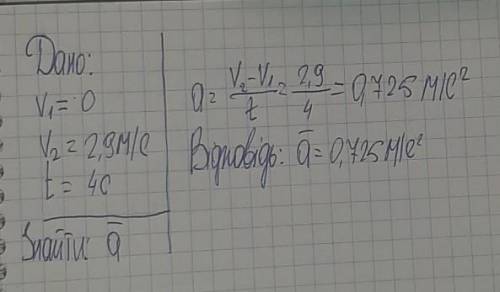 Дано:
V₁ = 0
V₂ = 2,9 М/С
t = 4С
Знайти: a̅
a = (V₂ - V₁)/t = 2,9/4 = 0,725 М/С²
Відповідь: a̅ = 0,725 М/С²